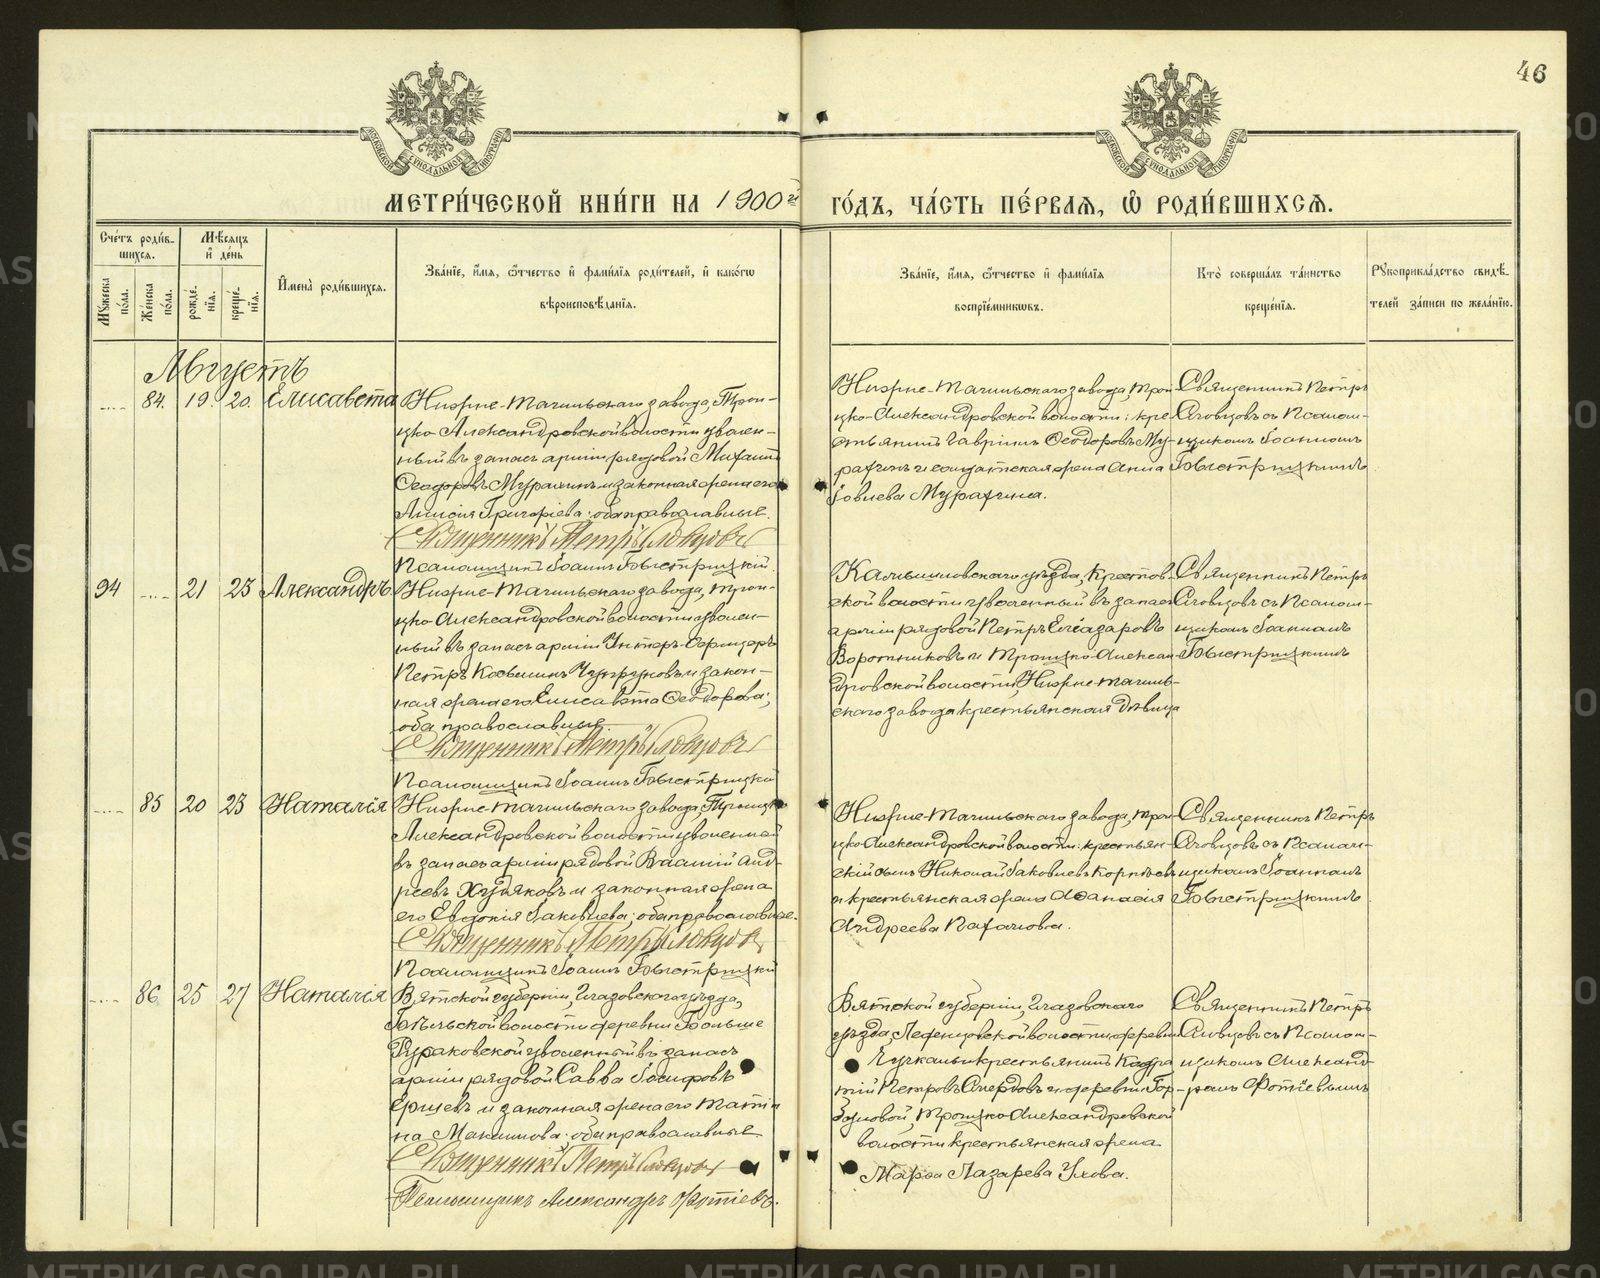 46
МОСКОВСКОЙ СѴНОДАЛЬНОЙ ТИПОГРАФІИ
МОСКОВСКОЙ СѴНОДАЛЬНОЙ ТИПОГРАФІИ
МЕТРИ́ЧЕСКОЙ КНИ́ГИ НА 1900й
ГО́ДЪ, ЧА́СТЬ ПЕ́РВАЯ, Ѡ РОДИ́ВШИХСЯ.
Сче́тъ роди́в-
шихся.
Мѣ́сяцъ
и де́нь
Мꙋжеска
по́ла.
Же́нска
по́ла.
рожде́-
нїя.
креще́-
нїя.
И҆мена̀ роди́вшихся.
Зва́нїе, и҆́мя, ѻ҆́тчество и҆ фами́лїя роди́телей, и҆ како́гѡ
вѣроисповѣ́данїя.
Зва́нїе, и҆́мя, ѻ҆́тчество и҆ фами́лїя
воспрїе́мникѡвъ.
Кто̀ соверша́лъ та́инство
креще́нїя.
Рꙋкоприкла́дство свидѣ́-
телей за́писи по жела́нїю.
Августъ
84. 19. 20. Елисавета
Нижне-Тагильскаго завода, Трои-
цко-Александровской волости уволен-
ный въ запасъ арміи рядовой Михаилъ
Ѳеодоровъ Мурахинъ и законная жена его
Анисія Григоріева; оба православные.
Священникъ Петръ Словцовъ
Псаломщикъ Іоаннъ Быстрицкій
Нижне-Тагильскаго завода, Трои-
цко-Александровской волости: кре-
стьянинъ Гавріилъ Ѳеодоровъ Му-
рахинъ и солдатская жена Анна
Іовлева Мурахина.
Священникъ Петръ
Словцовъ съ Псалом-
щикомъ Іоанномъ
Быстрицкимъ
94 21 23 Александръ
Нижне-Тагильскаго завода, Трои-
цко-Александровской волости уволен-
ный въ запасъ арміи Унтеръ-Офицеръ
Петръ Косьминъ и закон-
ная жена его Елисавета Ѳеодорова;
оба православные.
Священникъ Петръ Словцовъ
Псаломщикъ Іоаннъ Быстрицкій
Камышловскаго уѣзда, Крестов-
ской волости уволенный въ запасъ
арміи рядовой Петръ Елеазаровъ
Воротниковъ и Троицко-Алексан-
дровской волости, Нижне-Тагиль-
скаго завода крестьянская дѣвица
Священникъ Петръ
Словцовъ съ Псалом-
щикомъ Іоанномъ
Быстрицкимъ
85 20 23 Наталія
Нижне-Тагильскаго завода, Троицко-
Александровской волости уволенный
въ запасъ арміи рядовой Василій Анд-
реевъ Худяковъ и законная жена
его Евдокія Іаковлева; оба православные.
Священникъ Петръ Словцовъ
Псаломщикъ Іоаннъ Быстрицкій
Нижне-Тагильскаго завода, Трои-
цко-Александровской волости: крестьян-
скій сынъ Николай Іаковлевъ
и крестьянская жена Аѳанасія
Андреева
Священникъ Петръ
Словцовъ съ Псалом-
щикомъ Іоанномъ
Быстрицкимъ
86 25 27 Наталія
Вятской губерніи, Глазовскаго уѣзда,
волости деревни Больше
уволенный въ запасъ
арміи рядовой Савва Іосифовъ
и законная жена его Татія-
на Максимова; оба православные
Священникъ Петръ Словцовъ
Псаломщикъ Александръ Фотіевъ.
Вятской губерніи, Глазовскаго
уѣзда, волости, деревни
крестьянинъ
Петровъ и деревни Гор-
буновой, Троицко-Александровской
волости крестьянская жена
Марѳа Лазарева Ухова.
Священникъ Петръ
Словцовъ съ Псалом-
щикомъ Александ-
ромъ Фотіевымъ